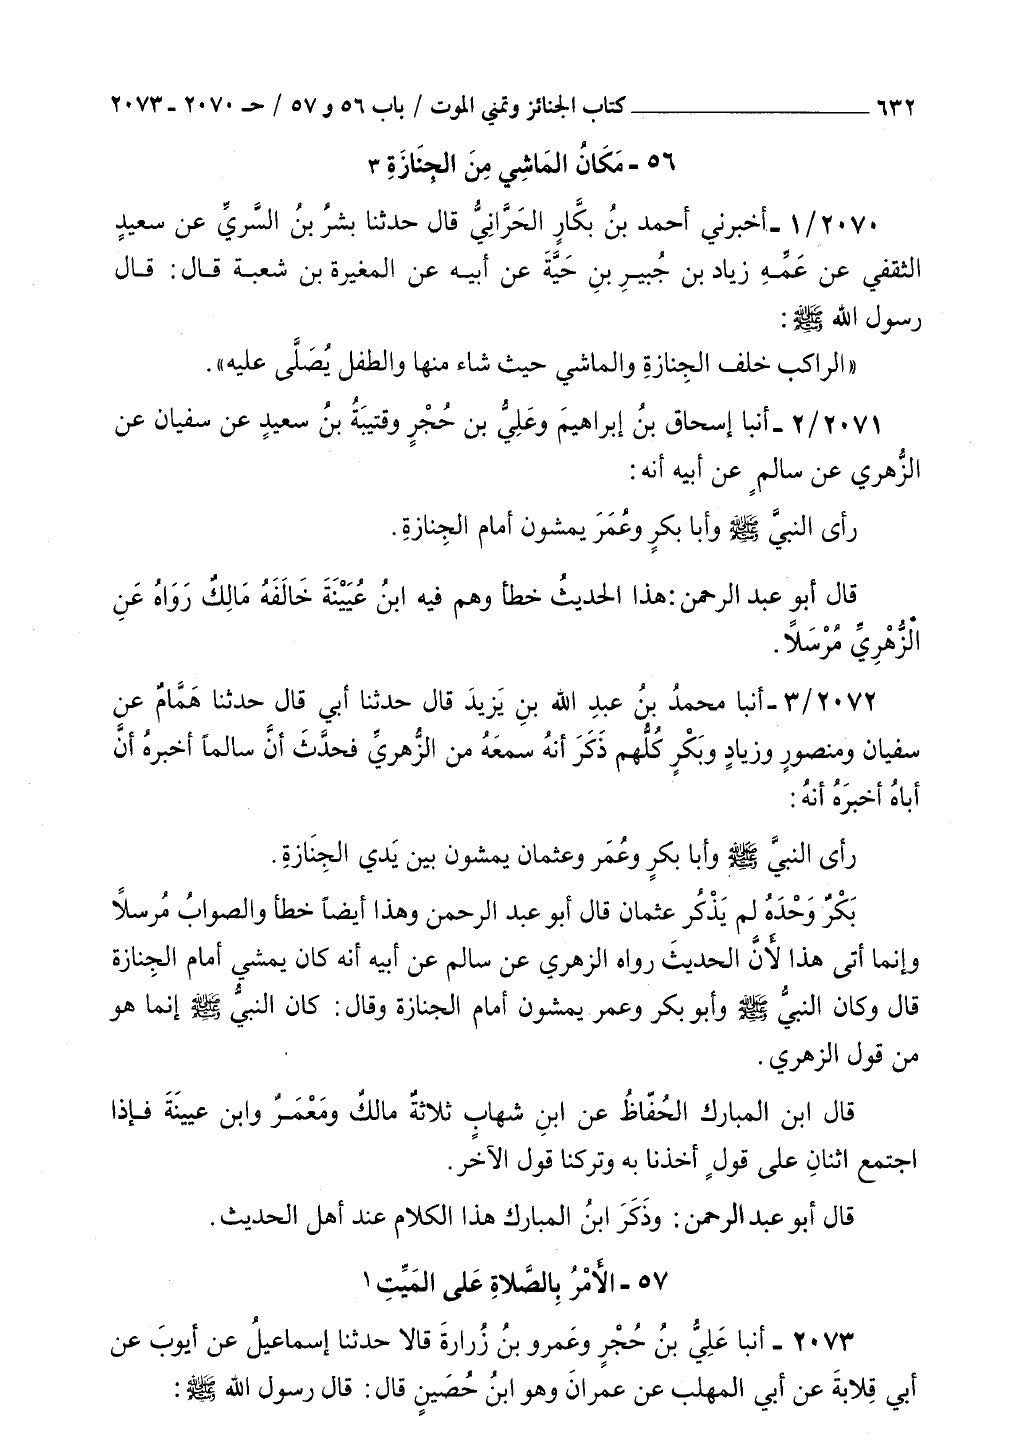 ٦٣٢ ــــــــــ كتاب الجنائز وتمني الموت / باب ٥٦ و ٥٧ / حـ ٢٠٧٠ ـ ٢٠٧٣
٥٦ - مَكَانُ المَاشِي مِنَ الجِنَازَةِ ٣
١/٢٠٧٠ ـ أخبرني أحمد بنُ بكَّارٍ الحَرَّانِيُّ قال حدثنا بشرُ بنُ السَّريِّ عن سعيدٍ
الثقفي عن عَمِّهِ زياد بن جُبيرِ بنِ حَيَّةَ عن أبيه عن المغيرة بن شعبة قال: قال
رسول الله ﷺ:
«الراكب خلف الجِنازةِ والماشي حيث شاء منها والطفل يُصَلَّى عليه».
٢/٢٠٧١ ـ أنبا إسحاق بنُ إبراهيمَ وعَلِيُّ بن حُجْرٍ وقتيبَةُ بنُ سعيدٍ عن سفيان عن
الزُّهري عن سالمٍ عن أبيه أنه:
رأى النبيَّ ﷺ وأبا بكرٍ وعُمَرَ يمشون أمام الجِنازةِ.
قال أبو عبد الرحمن: هذا الحديثُ خطأ وهم فيه ابنُ عُيَيْنَةَ خَالَفَهُ مَالِكٌ رَوَاهُ عَنِ
الزُّهْرِيِّ مُرْسَلاً.
٣/٢٠٧٢ ـ أنبا محمدُ بنُ عبدِ الله بنِ يَزيدَ قال حدثنا أبي قال حدثنا هَمَّامٌ عن
سفيان ومنصورٍ وزيادٍ وبَكْرٍ كُلُّهم ذَكَرَ أنهُ سمعَهُ من الزُّهريِّ فحدَّثَ أنَّ سالماً أخبرهُ أنَّ
أباهُ أخبرَهُ أنهُ:
رأى النبيَّ ﷺ وأبا بكرٍ وعُمَر وعثمان يمشون بين يَدي الجِنَازةِ.
بَكْرٌ وَحْدَهُ لم يَذْكُر عثمان قال أبو عبد الرحمن وهذا أيضاً خطأ والصوابُ مُرسلاً
وإنما أتى هذا لأَنَّ الحديثَ رواه الزهري عن سالم عن أبيه أنه كان يمشي أمام الجِنازة
قال وكان النبيُّ ﷺ وأبو بكر وعمر يمشون أمام الجنازة وقال: كان النبيُّ ﷺ إنما هو
من قول الزهري.
قال ابن المبارك الحُفّاظُ عن ابنِ شهابٍ ثلاثةٌ مالكٌ ومَعْمَرٌ وابن عيينَةَ فإذا
اجتمع اثنانِ على قولٍ أخذنا به وتركنا قول الآخر.
قال أبو عبد الرحمن: وذَكَرَ ابنُ المبارك هذا الكلام عند أهل الحديث.
٥٧ - الأَمْرُ بِالصَّلاةِ عَلى المَيِّتِ ١
٢٠٧٣ ـ أنبا عَلِيُّ بنُ حُجْرٍ وعَمرو بنُ زُرارةَ قالا حدثنا إسماعيلُ عن أيوبَ عن
أبي قِلابةَ عن أبي المهلب عن عمرانَ وهو ابنُ حُصَينٍ قال: قال رسول الله ﷺ: